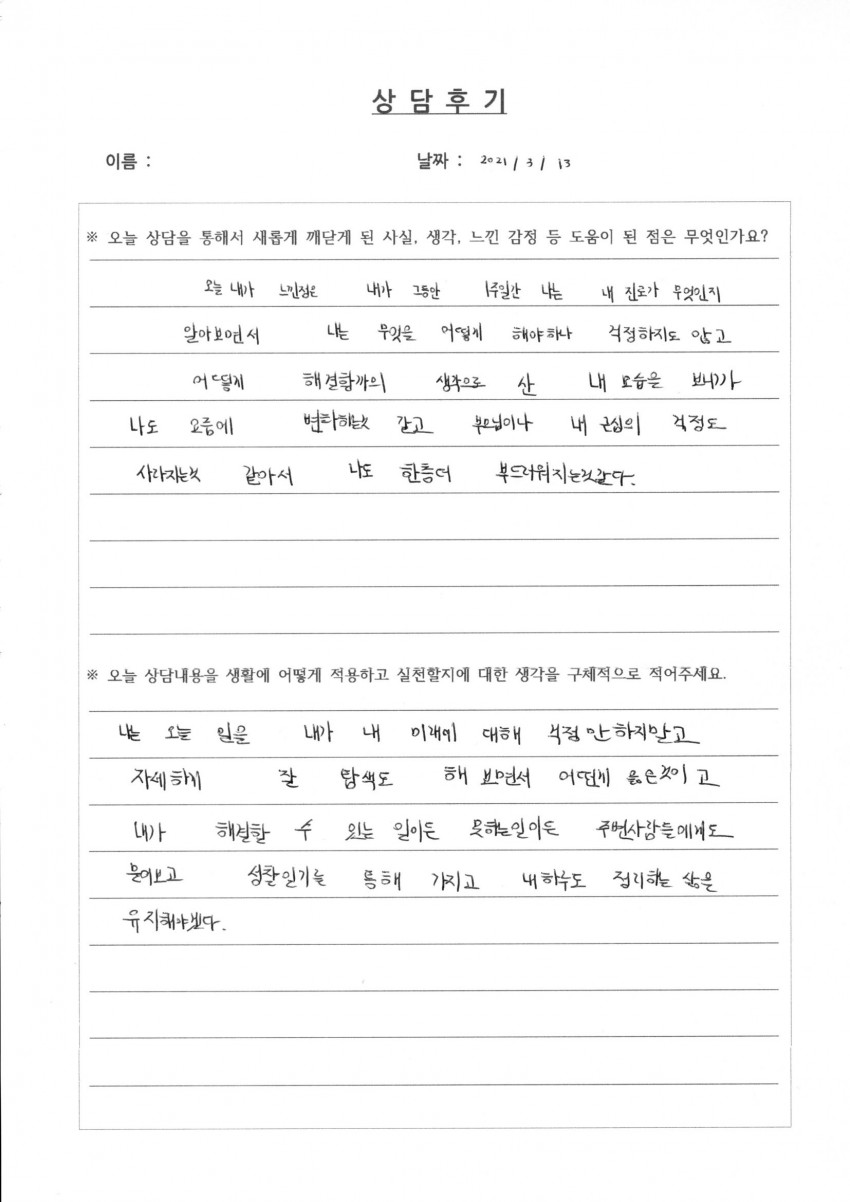 상 담 후 기
이름 :
날짜 : 2021 / 3 / 13
※ 오늘 상담을 통해서 새롭게 깨닫게 된 사실, 생각, 느낀 감정 등 도움이 된 점은 무엇인가요?
오늘 내가 느낀점은 내가 그동안 1주일간 나는 내 진로가 무엇인지
알아보면서 나는 무엇을 어떻게 해야하나 걱정하지도 않고
어떻게 해결할까의 생각으로 산 내 모습을 보니까
나도 요즘에 변화하는것 같고 부모님이나 내 근심의 걱정도
사라지는것 같아서 나도 한층더 부드러워지는것같다.
※ 오늘 상담내용을 생활에 어떻게 적용하고 실천할지에 대한 생각을 구체적으로 적어주세요.
나는 오늘 일을 내가 내 미래에 대해 걱정만하지말고
자세하게 잘 탐색도 해 보면서 어떤게 옳은것이고
내가 해결할 수 있는 일이든 못하는일이든 주변사람들에게도
물어보고 성찰일기를 통해 가지고 내하루도 정리하는 삶을
유지해야겠다.